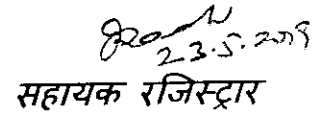 23.5.2019
सहायक रजिस्ट्रार